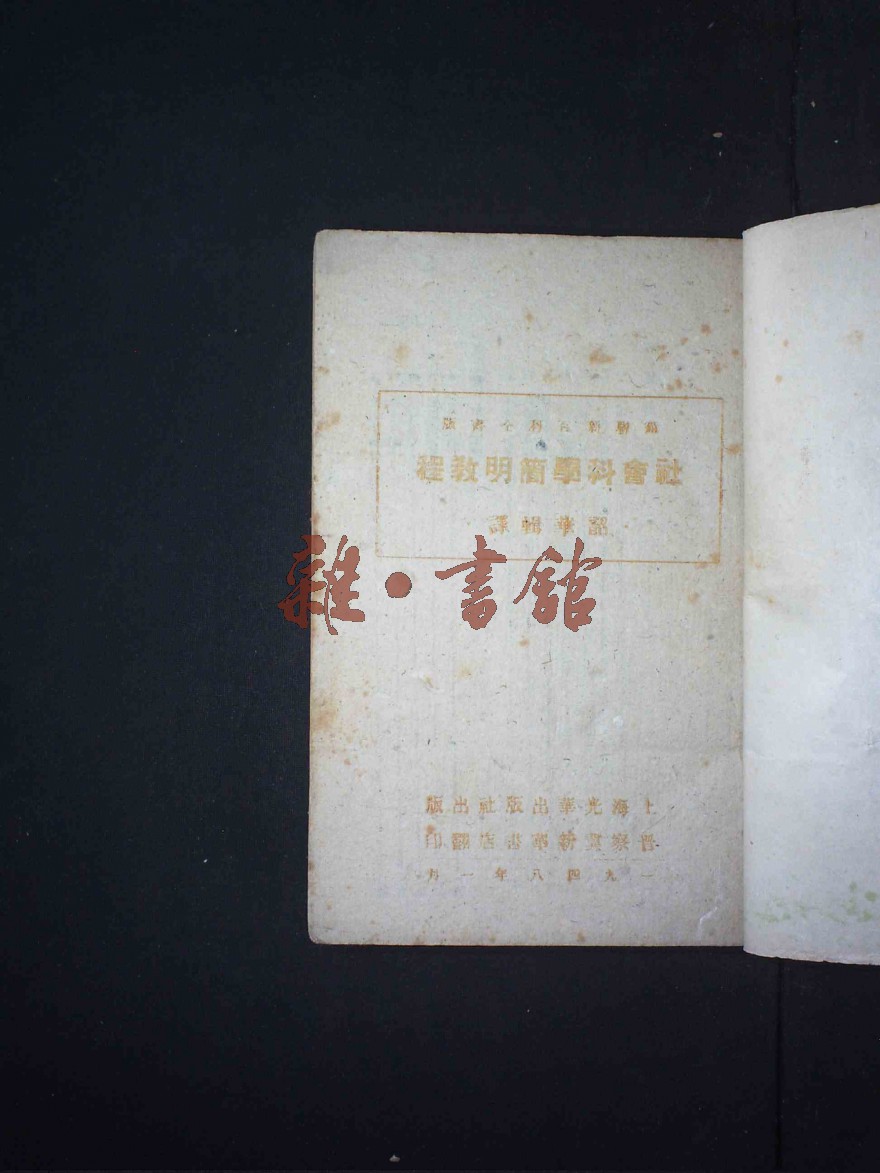 蘇聯新百科全書版
社會科學簡明教程
韶華輯譯
雜·書館
上海光華出版社出版
晉察冀新華書店翻印
一九四八年一月